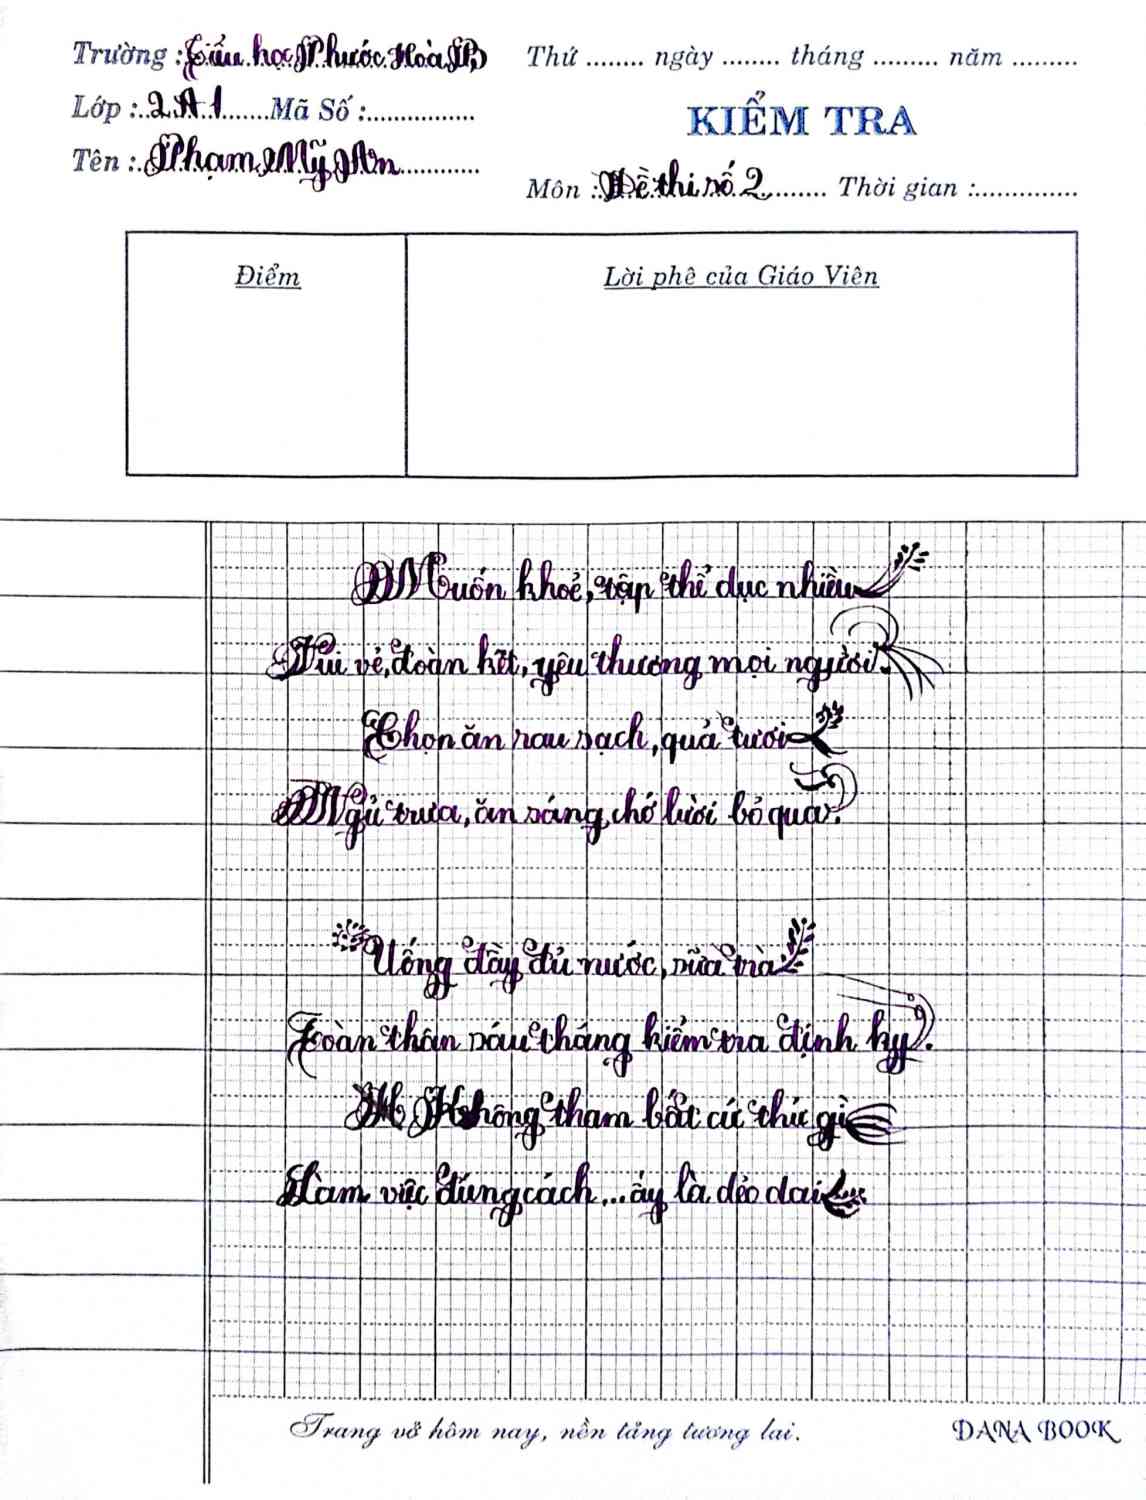 Trường : Tiểu học Phước Hoà B
Thứ ........ ngày ........ tháng ......... năm .........
Lớp : 2A1 Mã Số :...............
KIỂM TRA
Tên : Phạm Mỹ An
Môn : Đề thi số 2 Thời gian :..............
Điểm
Lời phê của Giáo Viên
Muốn khoẻ, tập thể dục nhiều
Vui vẻ, đoàn kết, yêu thương mọi người.
Chọn ăn rau sạch, quả tươi
Ngủ trưa, ăn sáng, chớ lười bỏ qua.
Uống đầy đủ nước, sữa trà
Toàn thân sáu tháng kiểm tra định kỳ.
Không tham bất cứ thứ gì
Làm việc đúng cách... ấy là dẻo dai
Trang vở hôm nay, nền tảng tương lai.
DANA BOOK